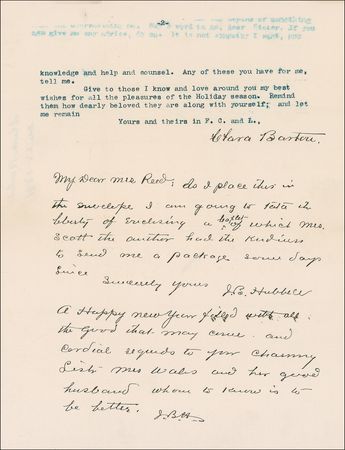 -2-
knowledge and help and counsel. Any of these you have for me,
tell me.
Give to those I know and love around you my best
wishes for all the pleasures of the Holiday season. Remind
them how dearly beloved they are along with yourself; and let
me remain
Yours and theirs in F. C. and L.,
Clara Barton.
My Dear Mrs Reed; As I place this in
the envelope I am going to take the
liberty of enclosing a leaflet which Mrs.
Scott the author had the kindness
to send me a package some days
since
Sincerely yours
J.B. Hubbell
A Happy New Year filled with all
the good that may come and
cordial regards to your charming
Sister Mrs and her good
husband whom to know is to
be better. J.B.H.